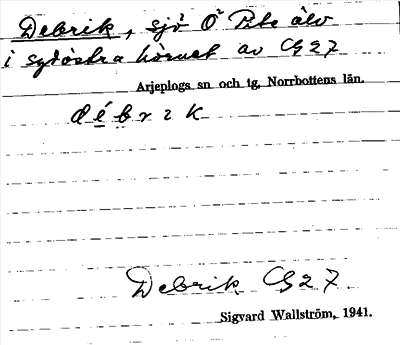 Debrik, sjö O Pite älv
i sydöstra hörnet av G 27
Arjeplogs sn och tg, Norrbottens län.
débrık
Debrik G 27.
Sigvard Wallström, 1941.